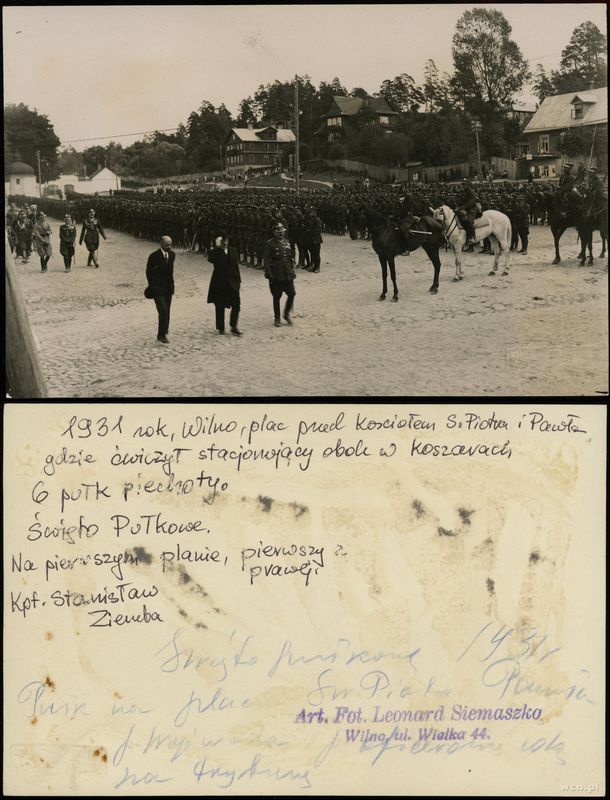 1931 rok, Wilno, plac przed Kościołem S. Piotra i Pawła
gdzie ćwiczył stacjonujący obok w koszarach
6 pułk piechoty.
Święto Pułkowe.
Na pierwszym planie, pierwszy z
prawej.
Kpt. Stanisław
Ziemba
Święto pułkowe 1931 r
Pułk na placu Św Piotra Pawła
Art. Fot. Leonard Siemaszko
Wilno, ul. Wielka 44.
na trybunę
wcn.pl